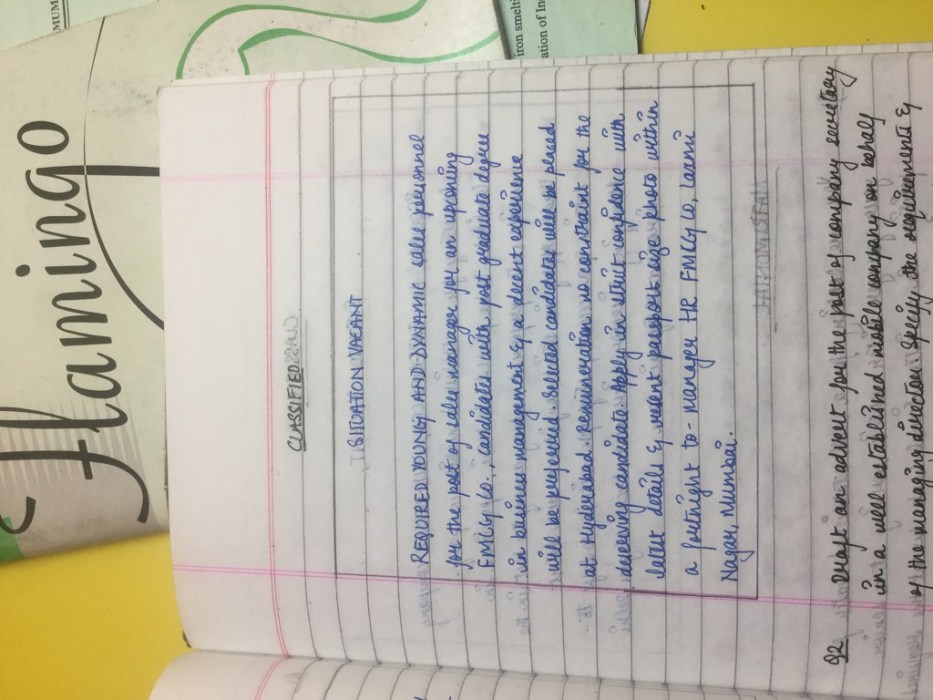 Flamingo
MUM
CLASSIFIED
SITUATION VACANT
REQUIRED YOUNG AND DYNAMIC sales personnel
for the post of sales manager for an upcoming
FMCG Co., candidates with post graduate degree
in business management & a decent experience
will be preferred. Selected candidates will be placed
at Hyderabad. Remuneration no constraint for the
deserving candidate. Apply in strict confidence with
latest details & resent passport size photo within
a fortnight to - manager HR FMCG CO, Laxmi
Nagar, Mumbai.
iron smelti
ation of In
MATRIMONIAL
Q2 Draft an advert for the post of company secretary
in a well established mobile company on behalf
of the managing director. Specify the requirements &